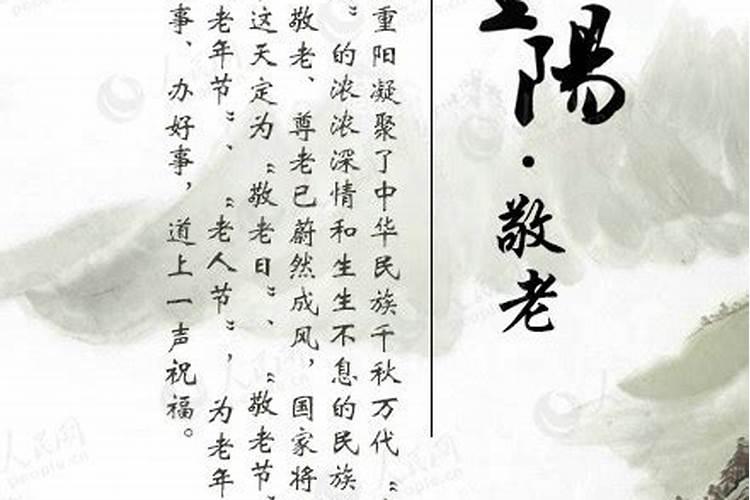 陽·敬老
重阳凝聚了中华民族千秋万代“
”的浓浓深情和生生不息的民族
敬老、尊老已蔚然成风，国家将
这天定为“敬老日”、“敬老节”
老年节”、“老人节”，为老年
事、办好事，道上一声祝福。
人民网
people.cn